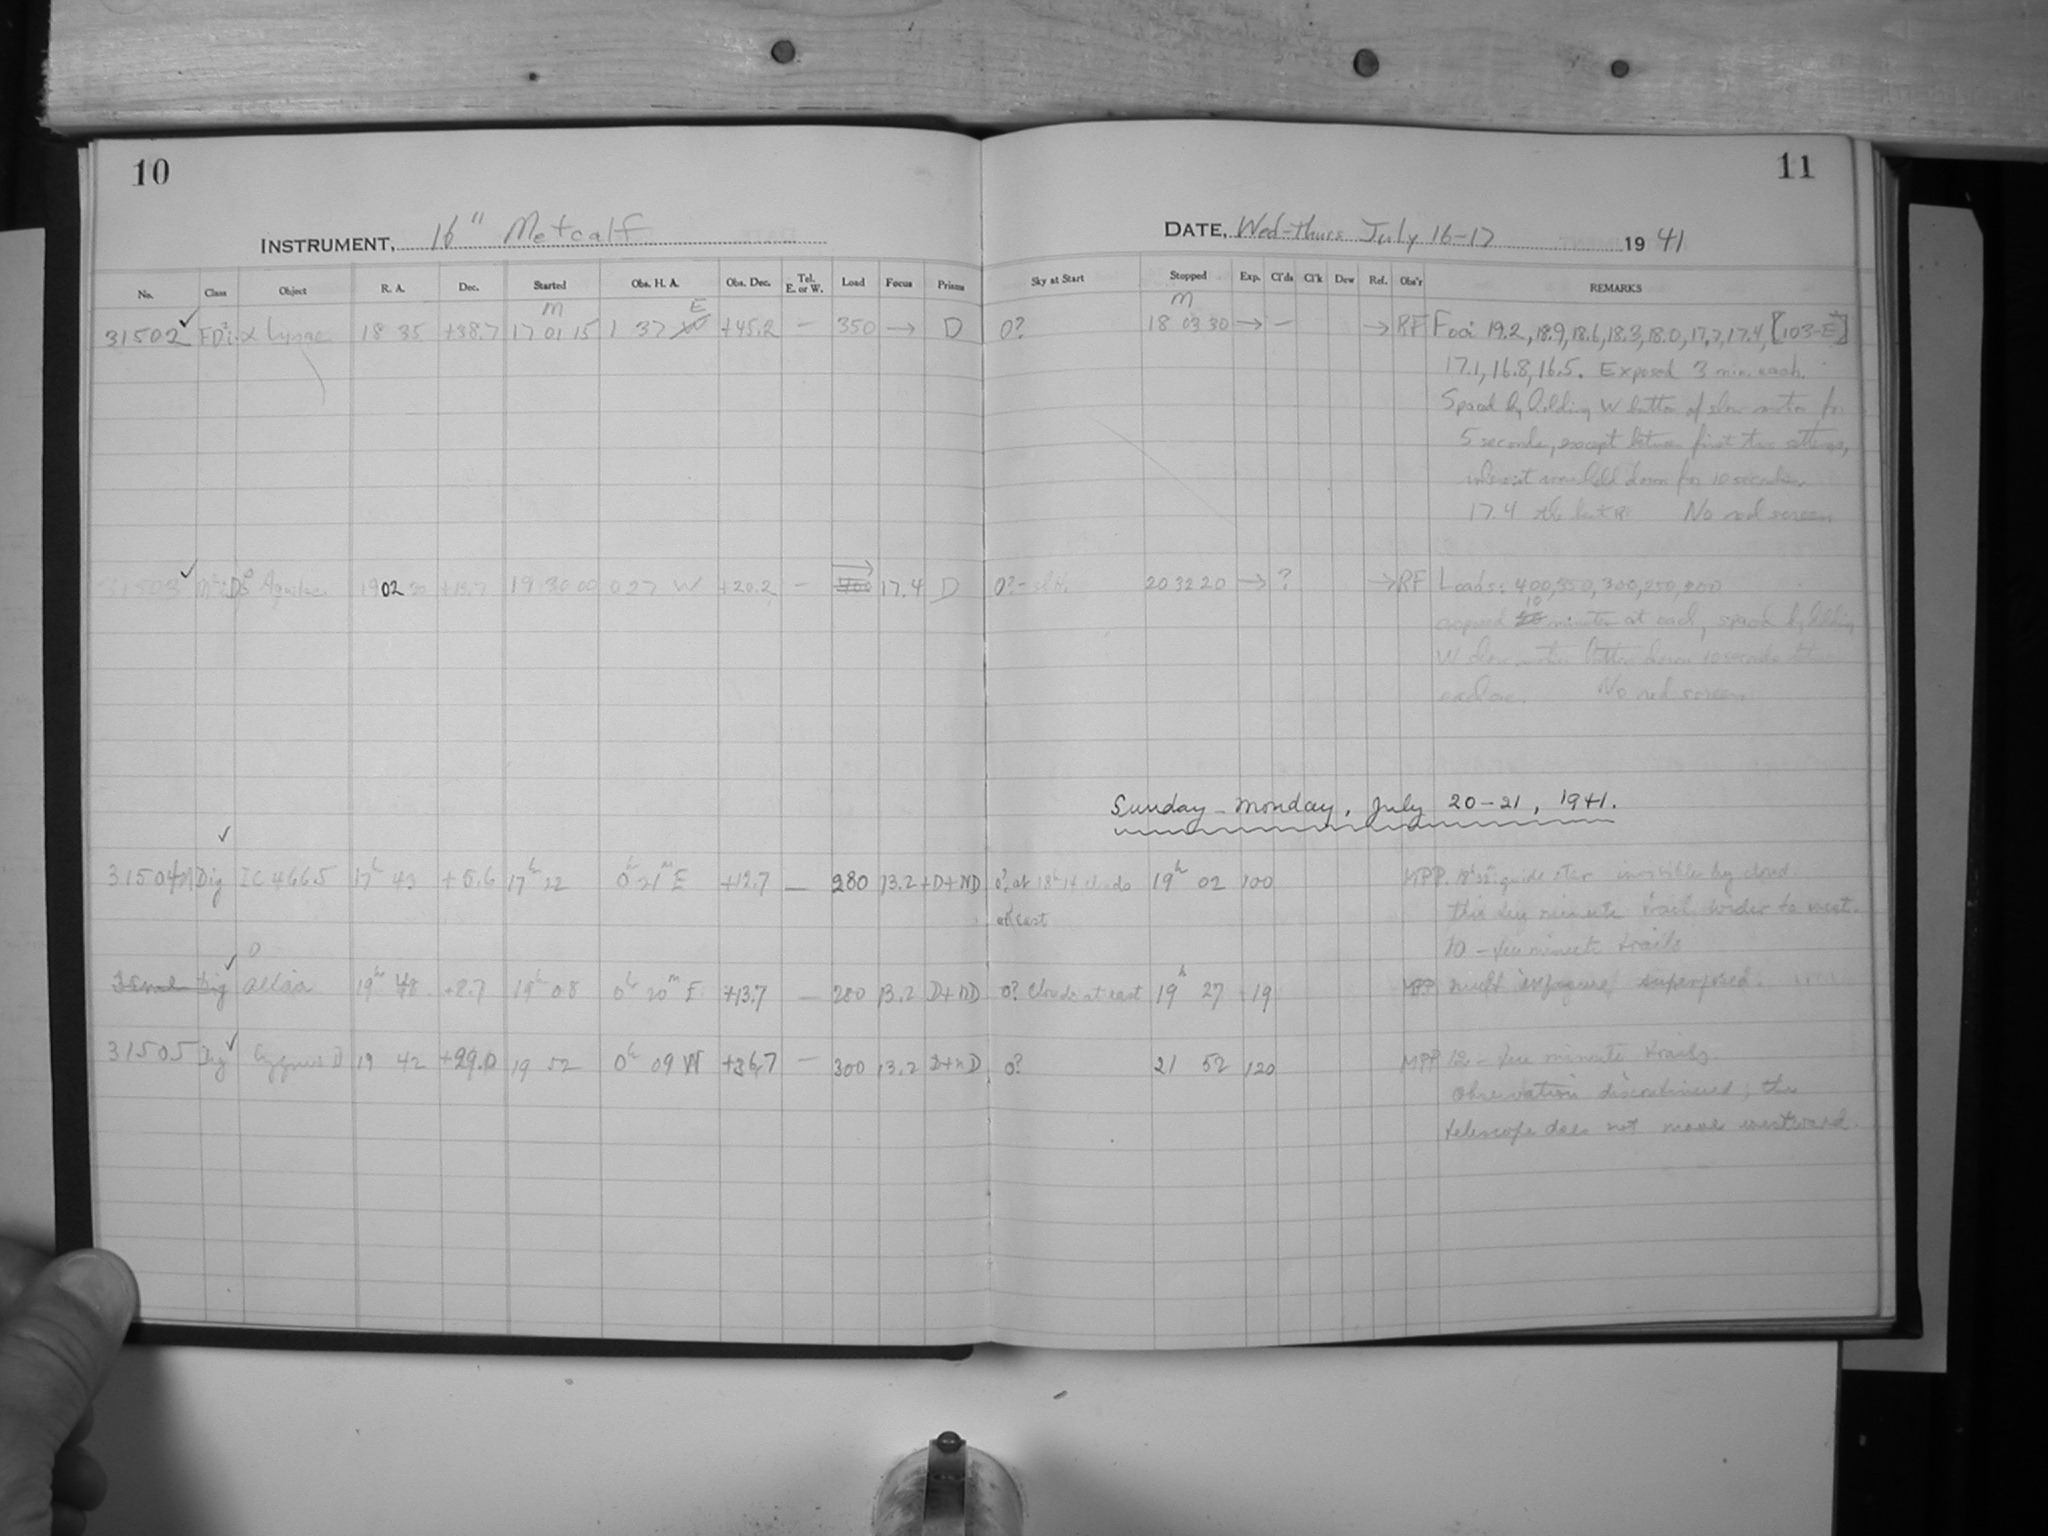 10
11
INSTRUMENT, 16" Metcalf
DATE, Wed-Thurs July 16-17 1941
No. Class Object R. A. Dec. Started Obs. H. A. Obs. Dec. Tel. E. or W. Load Focus Prisms Sky at Start Stopped Exp. Cl'ds Cl'k Dew Ref. Obs'r REMARKS
M E M
31502 ✓ α Lyrae 18 35 +38.7 17 01 15 1 37 +45.2 — 350 → D 0? 18 03 30 → — → RF Foci 19.2, 18.9, 18.6, 18.3, 18.0, 17.7, 17.4, [103-E]
17.1, 16.8, 16.5. Exposed 3 min. each.
Spaced by holding W button of slow motion for
5 seconds, except between first two settings,
when it was held down for 10 seconds.
17.4 the best RF No red screen
31503 ✓ Aquilae 19 02 +13.7 19 30 00 0 27 W +20.2 — 400 17.4 D 0? 20 32 20 → ? → RF Loads: 400, 350, 300, 250, 200
exposed 10 minutes at each, spaced by holding
W slow motion button down 10 seconds
No red screen
Sunday - Monday, July 20-21, 1941.
✓
31504 Dig IC 4665 17h 43 +5.6 17h 22 0h 21m E +12.7 — 280 13.2 D+ND 0? at 18h 14 clouds 19h 02 100 MPP. guide star invisible by cloud.
at east this ten minute trail wider to west.
10 - ten minute trails
Dig ✓ Altair 19h 48 +8.7 19h 08 0h 20m E +13.7 — 280 13.2 D+ND 0? clouds at east 19h 27 19 MPP mult exposure superposed.
31505 Dig ✓ Cygnus 19 42 +29.0 19 52 0h 09 W +36.7 — 300 13.2 D+ND 0? 21 52 120 MPP 12 - ten minute trails.
Observation discontinued; the
telescope does not move westward.